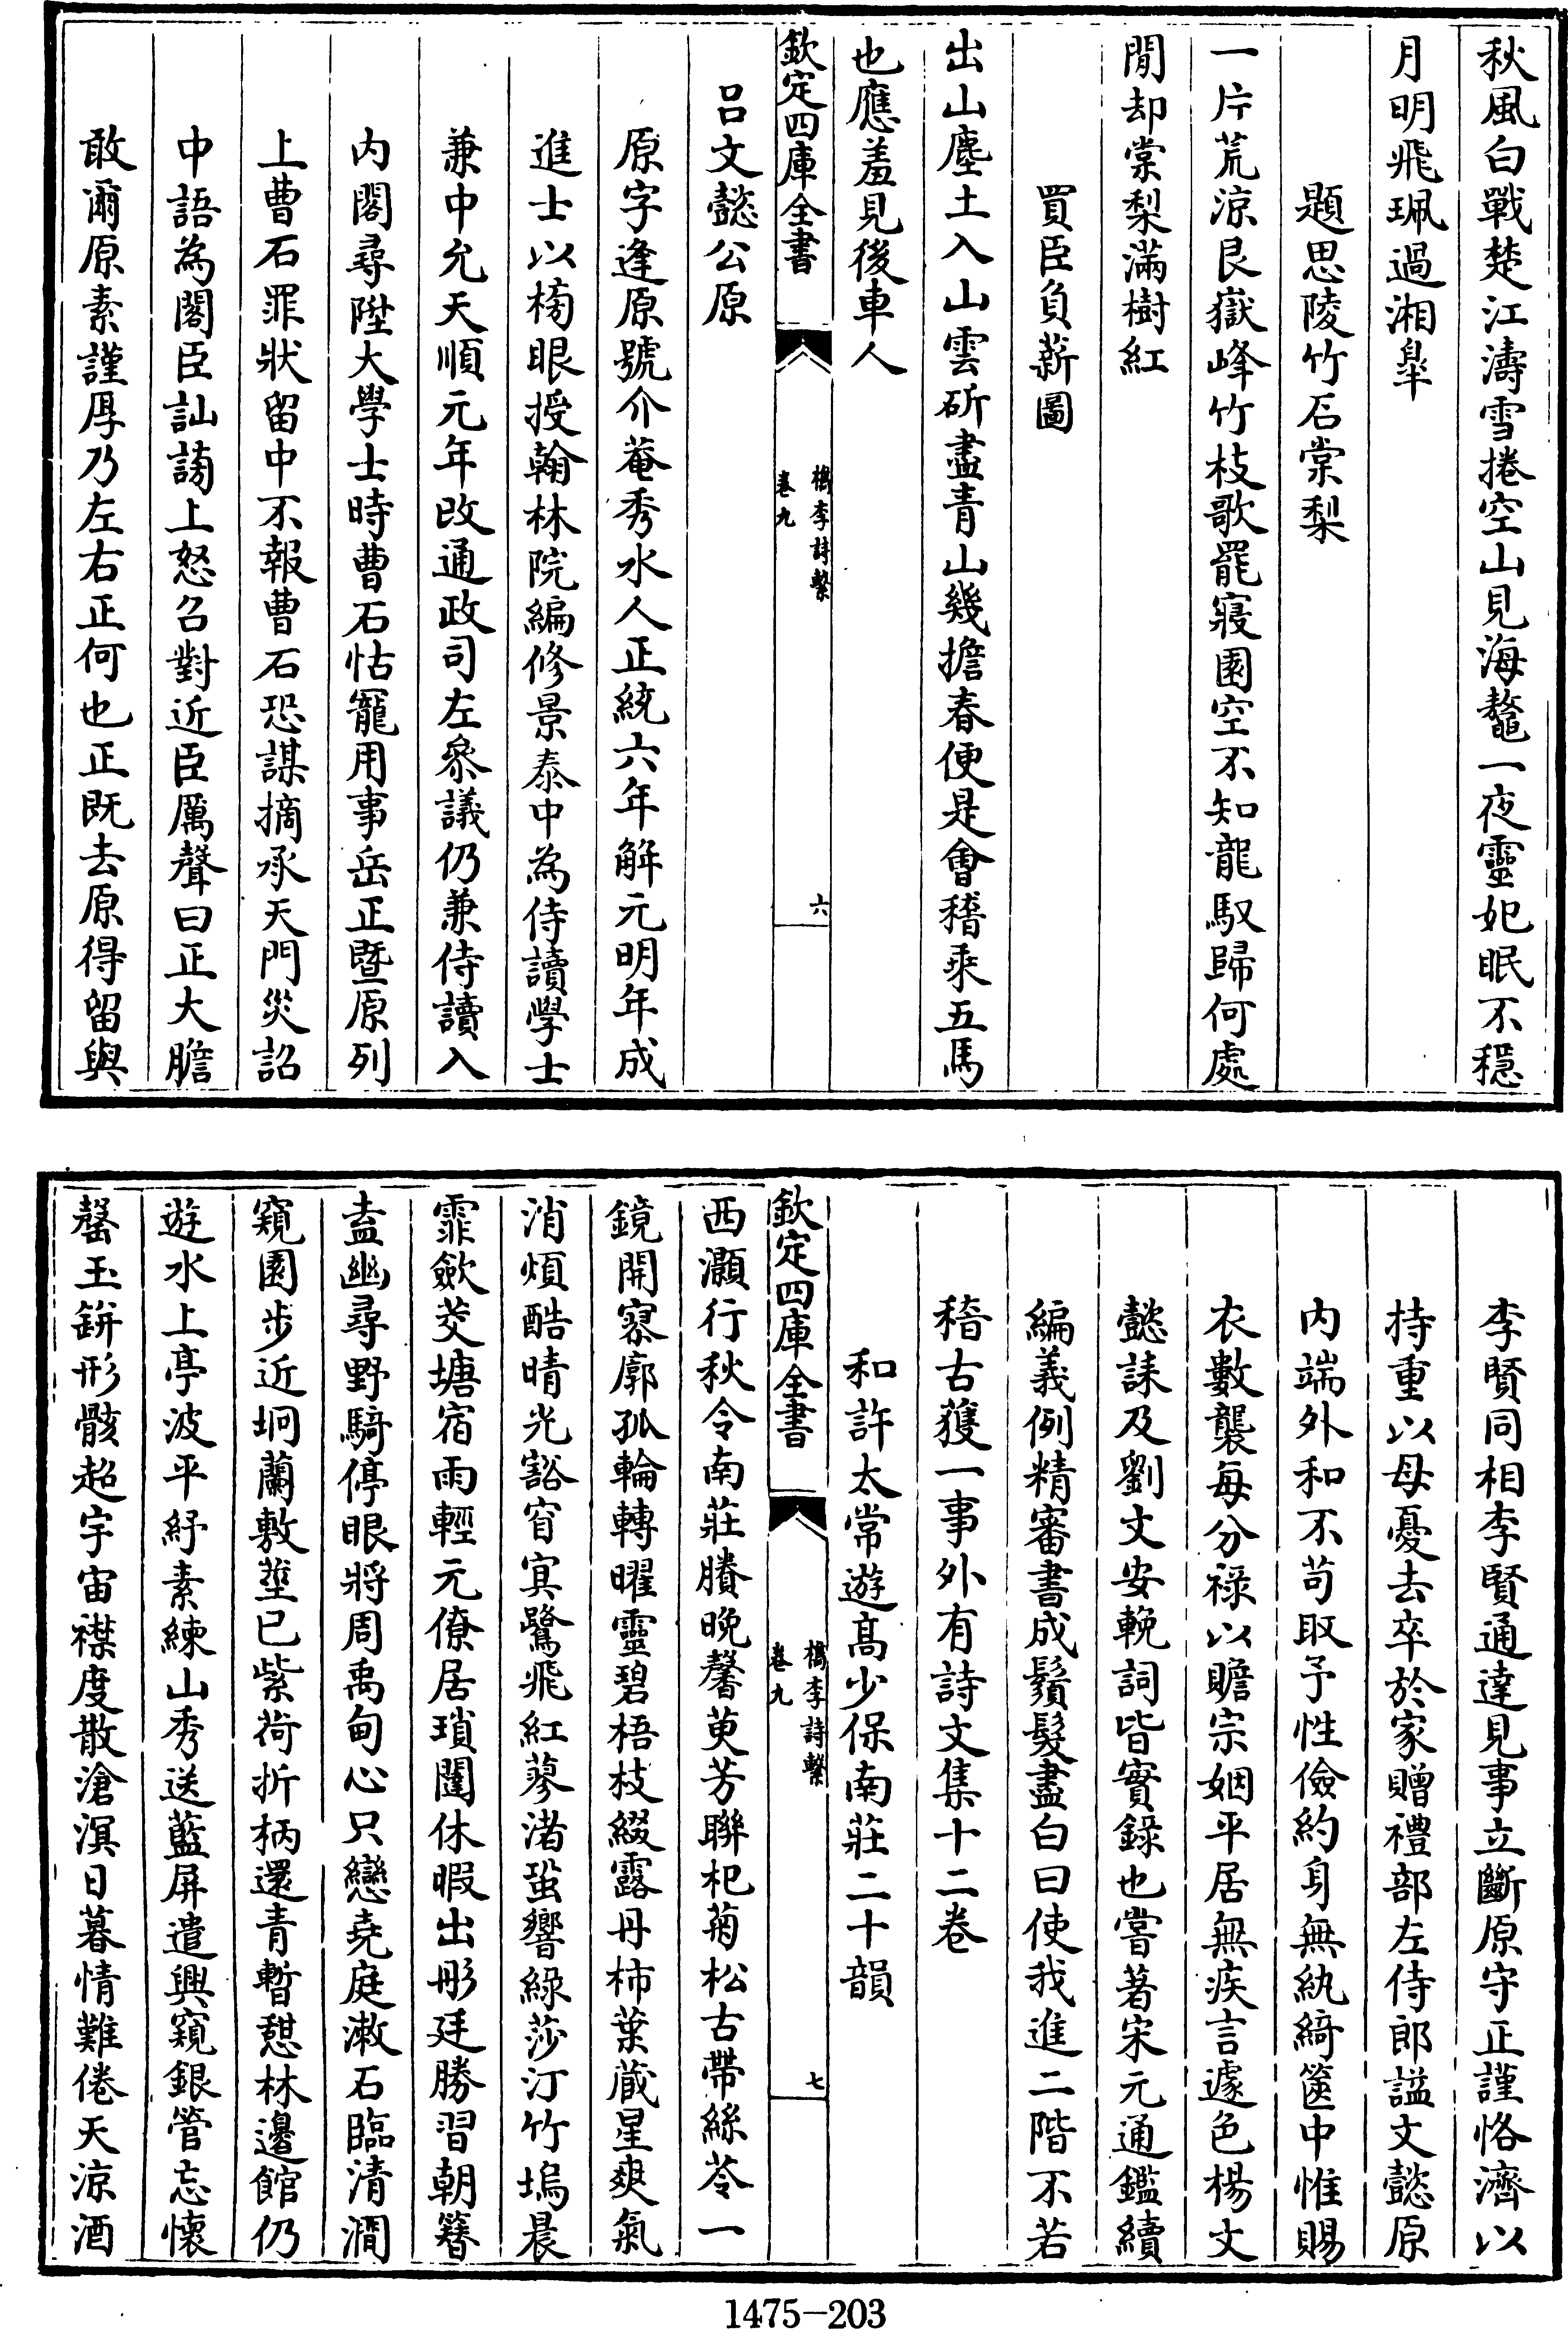 秋風白戰楚江濤雪捲空山見海鼇一夜靈妃眠不穩
月明飛珮過湘臯
題思陵竹石棠梨
一片荒涼艮嶽峰竹枝歌罷寢園空不知龍馭歸何處
閒却棠梨滿樹紅
買臣負薪圖
出山塵土入山雲斫盡青山幾擔春便是會稽乘五馬
也應羞見後車人
欽定四庫全書
檇李詩繫
卷九
六
呂文懿公原
原字逢原號介菴秀水人正統六年解元明年成
進士以榜眼授翰林院編修景泰中為侍讀學士
兼中允天順元年改通政司左叅議仍兼侍讀入
內閣尋陞大學士時曹石怙寵用事岳正暨原列
上曹石罪狀留中不報曹石恐謀摘承天門災詔
中語為閣臣訕謗上怒召對近臣厲聲曰正大膽
敢爾原素謹厚乃左右正何也正既去原得留與
李賢同相李賢通達見事立斷原守正謹恪濟以
持重以母憂去卒於家贈禮部左侍郎謚文懿原
內端外和不苟取予性儉約身無紈綺篋中惟賜
衣數襲每分祿以贍宗姻平居無疾言遽色楊文
懿誄及劉文安輓詞皆實錄也嘗著宋元通鑑續
編義例精審書成鬚髮盡白曰使我進二階不若
稽古獲一事外有詩文集十二卷
和許太常遊高少保南莊二十韻
欽定四庫全書
檇李詩繫
卷九
七
西灝行秋令南莊賸晚馨萸芳聯杞菊松古帶絲苓一
鏡開寥廓孤輪轉曜靈碧梧枝綴露丹柿葉蔵星爽氣
消煩酷晴光豁窅冥鷺飛紅蓼渚蛩響綠莎汀竹塢晨
霏歛茭塘宿雨輕元僚居瑣闥休暇出彤廷勝習朝簪
盍幽尋野騎停眼將周禹甸心只戀堯庭漱石臨清澗
窺園步近坰蘭敷莖已紫荷折柄還青暫憇林邊館仍
遊水上亭波平紓素練山秀送藍屏遣興窺銀管忘懷
罄玉缾形骸超宇宙襟度散滄溟日暮情難倦天涼酒
1475-203